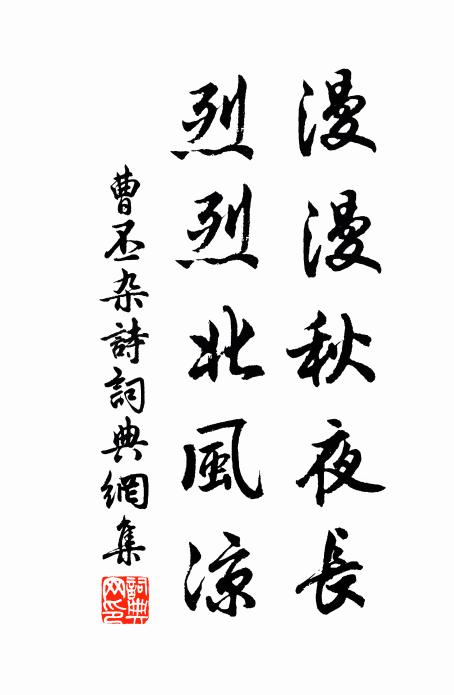 漫漫秋夜長
烈烈北風涼
曹丕杂詩詞典網集
詞典
网印